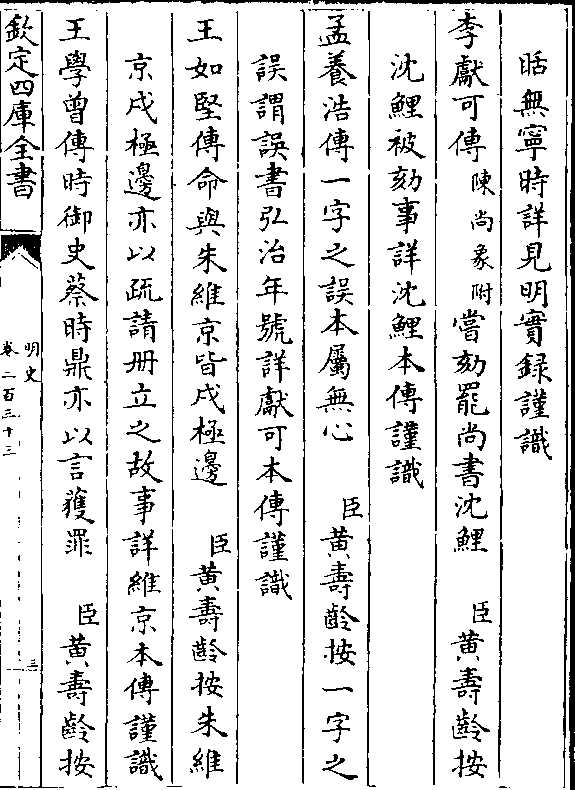 晤無寧時詳見明實録謹識
李獻可傳陳尚象附嘗劾罷尚書沈鯉　臣黄壽齡按
沈鯉被劾事詳沈鯉本傳謹識
孟養浩傳一字之誤本屬無心　臣黄壽齡按一字之
誤謂誤書弘治年號詳獻可本傳謹識
王如堅傳命與朱維京皆戍極邊　臣黄壽齡按朱維
京戍極邊亦以疏請册立之故事詳維京本傳謹識
王學曾傳時御史蔡時鼎亦以言獲罪　臣黄壽齡按
欽定四庫全書
明史
卷二百三十三
三